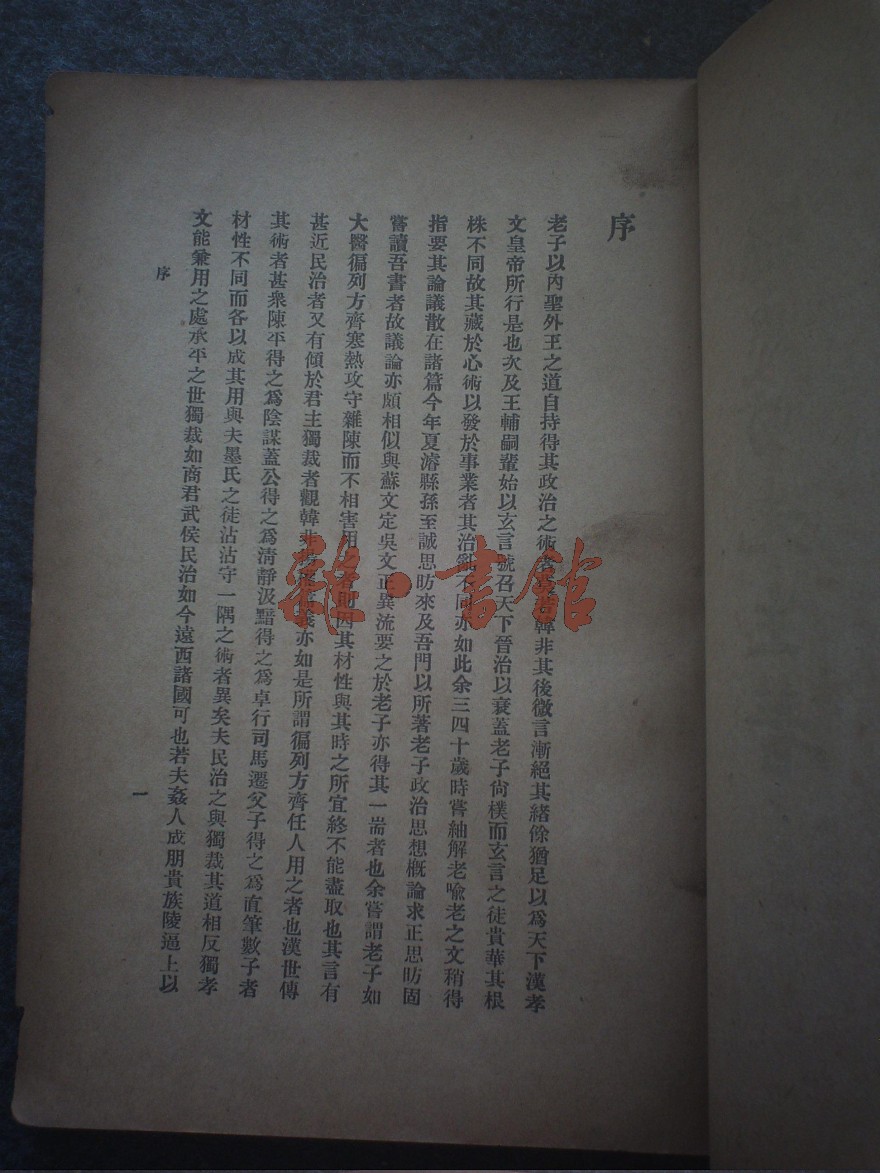 序
老子以內聖外王之道自持得其政治之術者莫若韓非其後微言漸絕其緒餘猶足以爲天下漢孝
文皇帝所行是也次及王輔嗣輩始以玄言號召天下晉治以衰蓋老子尙樸而玄言之徒貴華其根
株不同故其藏於心術以發於事業者其治亂不同亦如此余三四十歲時嘗紬解老喩老之文稍得
指要其論議散在諸篇今年夏濬縣孫至誠思昉來及吾門以所著老子政治思想槪論求正思昉固
嘗讀吾書者故議論亦頗相似與蘇文定吳文正異流要之於老子亦得其一耑者也余嘗謂老子如
大醫徧列方齊寒熱攻守雜陳而不相害用之者則因其材性與其時之所宜終不能盡取也其言有
甚近民治者又有傾於君主獨裁者觀韓非亦如是所謂徧列方齊任人用之者也漢世傳
其術者甚衆陳平得之爲陰謀蓋公得之爲淸靜汲黯得之爲卓行司馬遷父子得之爲直筆數子者
材性不同而各以成其用與夫墨氏之徒沾沾守一隅之術者異矣夫民治之與獨裁其道相反獨孝
文能兼用之處承平之世獨裁如商君武侯民治如今遠西諸國可也若夫姦人成朋貴族陵逼上以
序
一
雜·書館